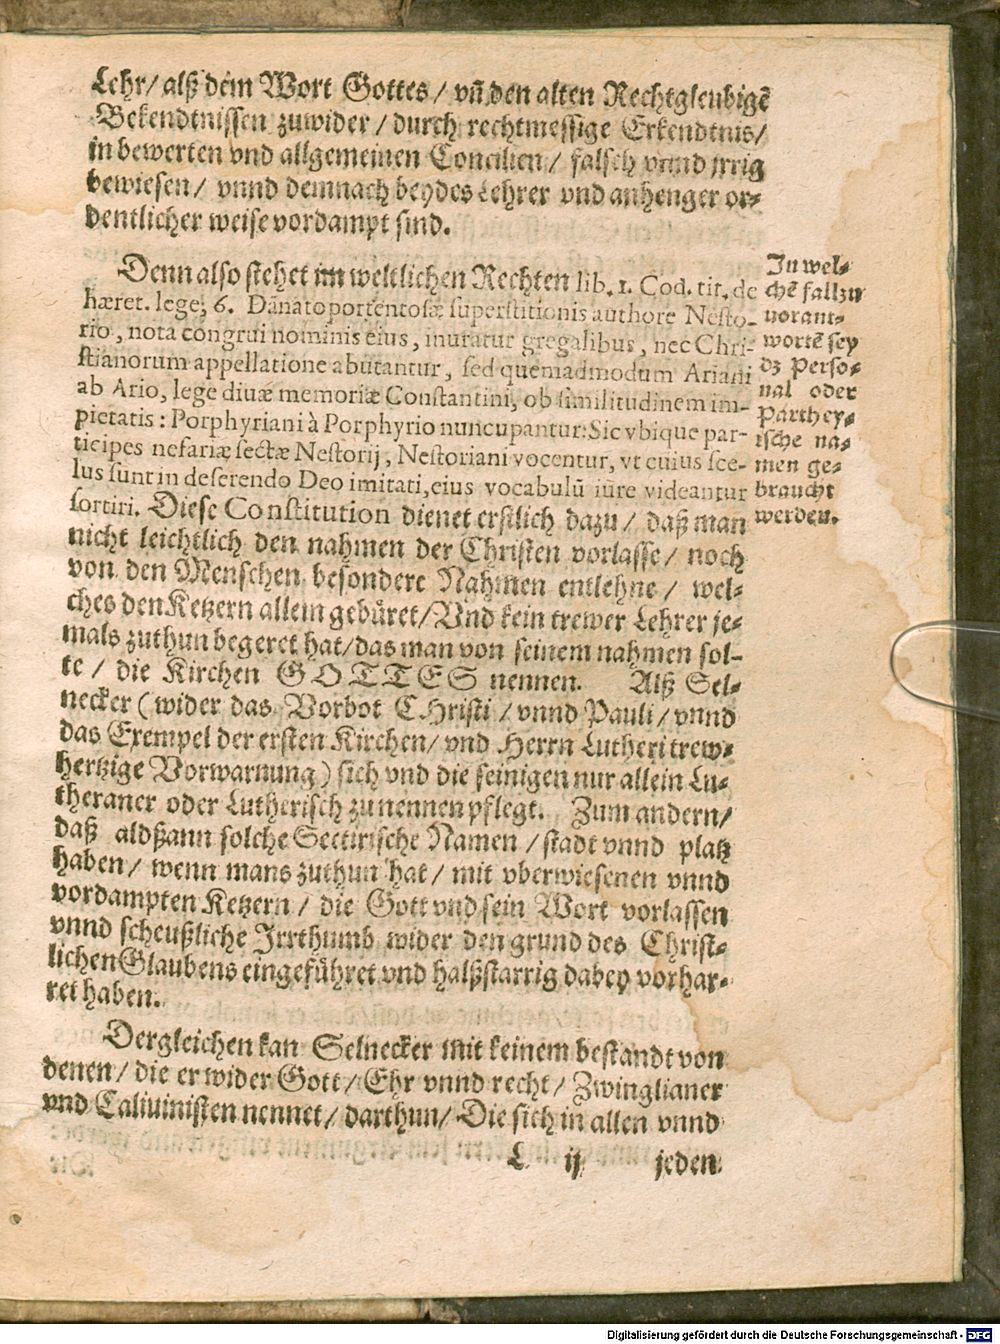 Lehr/ alß dem Wort Gottes/ vñ den alten Rechtgleubigẽ
Bekendtnissen zuwider/ durch rechtmessige Erkendtnis/
in bewerten vnd allgemeinen Concilien/ falsch vnnd jrrig
bewiesen/ vnnd demnach beydes Lehrer vnd anhenger or-
dentlicher weise vordampt sind.
Denn also stehet im weltlichen Rechten lib. 1. Cod. tit. de
hæret. lege, 6. Dãnato portentosæ superstitionis authore Nesto-
rio, nota congrui nominis eius, inuratur gregalibus, nec Chri-
stianorum appellatione abutantur, sed quemadmodum Ariani
ab Ario, lege divæ memoriæ Constantini, ob similitudinem im-
pietatis: Porphyriani à Porphyrio nuncupantur: Sic vbique par-
ticipes nefariæ sectæ Nestorij, Nestoriani vocentur, vt cuius sce-
lus sunt in deserendo Deo imitati, eius vocabulũ iure videantur
sortiri. Diese Constitution dienet erstlich dazu/ daß man
nicht leichtlich den nahmen der Christen vorlasse/ noch
von den Menschen besondere Nahmen entlehne/ wel-
ches den Ketzern allein gebüret/ Vnd kein trewer Lehrer je-
mals zuthun begeret hat/ das man von seinem nahmen sol-
te/ die Kirchen GOTTES nennen. Alß Sel-
necker (wider das Vorbot Christi/ vnnd Pauli/ vnnd
das Exempel der ersten Kirchen/ vnd Herrn Lutheri trew-
hertzige Vorwarnung) sich vnd die seinigen nur allein Lu-
theraner oder Lutherisch zu nennen pflegt. Zum andern/
daß aldßann solche Sectirische Namen/ stadt vnnd platz
haben/ wenn mans zuthun hat/ mit vberwiesenen vnnd
vordampten Ketzern/ die Gott vnd sein Wort vorlassen
vnnd scheußliche Irrthumb wider den grund des Christ-
lichen Glaubens eingeführet vnd halßstarrig dabey vorhar-
ret haben.
Dergleichen kan Selnecker mit keinem bestandt von
denen/ die er wider Gott/ Ehr vnnd recht/ Zwinglianer
vnd Caluinisten nennet/ darthun/ Die sich in allen vnnd
L ij jeden
In wel-
chẽ fall zu
vorant-
wortẽ sey
dz Perso-
nal oder
Parthey-
ische na-
men ge-
braucht
werden.
Digitalisierung gefördert durch die Deutsche Forschungsgemeinschaft - DFG